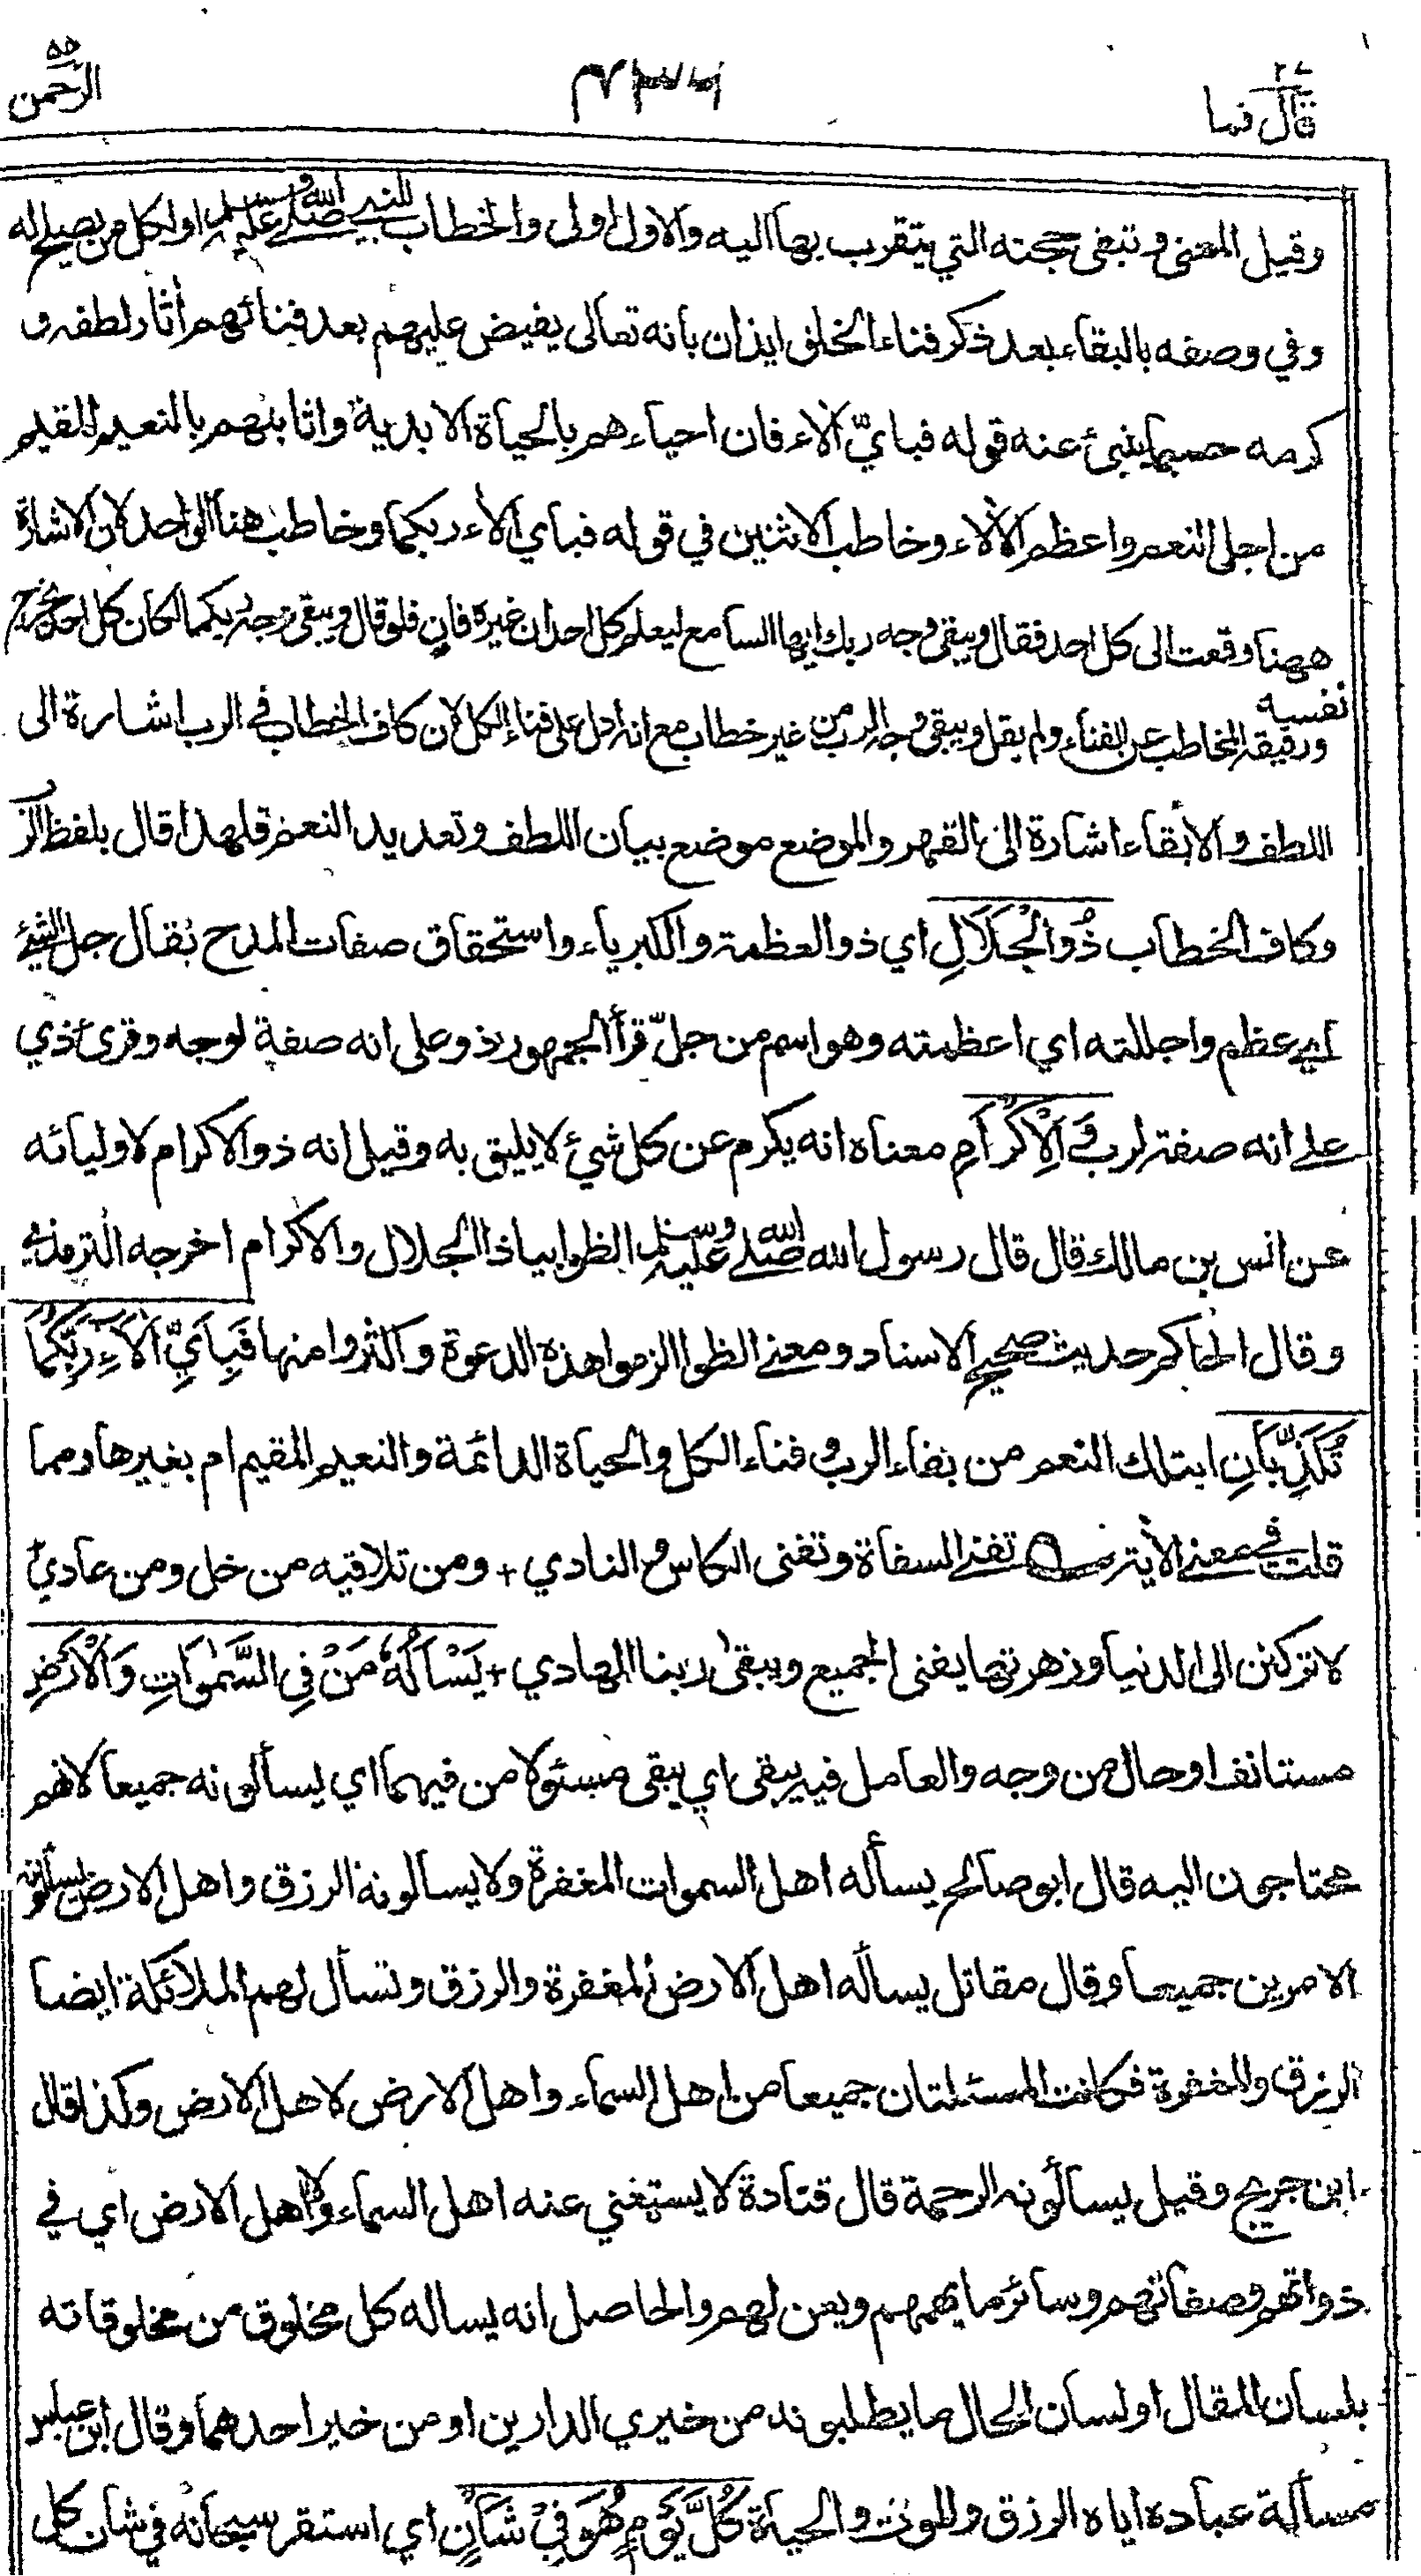 قال فما ٢٧
الرحمن ٥٥
وقيل المعنى وتبقى حجته التي يتقرب بها اليه والاول اولى والخطاب للنبي صلى الله عليه وسلم او لكل من يصلح له
وفي وصفه بالبقاء بعد ذكر فناء الخلق ايذان بانه تعالى يفيض عليهم بعد فنائهم أثار لطفه و
كرمه حسبما ينبئ عنه قوله فبايّ ألاء فان احياءهم بالحياة الابدية واثابتهم بالنعيم المقيم
من اجل النعم واعظم الألاء وخاطب الاثنين في قوله فباي ألاء ربكما وخاطب هنا الواحد لان الاشارة
ههنا وقعت الى كل احد فقال ويبقى وجه ربك ايها السامع ليعلم كل احد ان غيره فانٍ فلو قال ويبقى وجه ربكما لكان كل احد يخرج
نفسه
ورفيقه المخاطب عن الفناء ولم يقل ويبقى وجه الرب من غير خطاب مع انه ادل على فناء الكل لان كاف الخطاب في الرب اشارة الى
اللطف والأبقاء اشارة الى القهر والموضع موضع بيان اللطف وتعديد النعم فلهذا قال بلفظ الرّ
وكاف الخطاب ذُو الْجَلَالِ اي ذو العظمة والكبرياء واستحقاق صفات المدح يقال جل الشيئ
اي عظم واجللته اي اعظمته وهو اسم من جلّ قرأ الجمهور ذو على انه صفة لوجه وقرئ ذي
على انه صفة لرب وَالْاِكْرَامِ معناه انه يكرم عن كل شيئ لا يليق به وقيل انه ذو الاكرام لاوليائه
عن انس بن مالك قال قال رسول الله صلى الله عليه وسلم الظوا بياذا الجلال والاكرام اخرجه الترمذي
وقال الحاكم حديث صحيح الاسناد ومعنى الظوا الزموا هذه الدعوة واكثروا منها فَبِاَيِّ اٰلَاۤءِ رَبِّكُمَا
تُكَذِّبَانِ ابتلك النعم من بقاء الرب وفناء الكل والحياة الدائمة والنعيم المقيم ام بغيرها ومما
قلت في معنى الأية تفنى السقاة وتفنى الكاس والنادي + ومن تلاقيه من خل ومن عادي
لا تركنن الى الدنيا وزهرتها يفنى الجميع ويبقى ربنا الهادي + يَسْأَلُهٗ مَنْ فِى السَّمٰوَاتِ وَالْاَرْضِ
مستانف او حال من وجه والعامل فيه يبقى اي يبقى مسئولا من فيهما اي يسألونه جميعا لانهم
محتاجون اليه قال ابو صالح يسأله اهل السموات المغفرة ولا يسالونه الرزق واهل الارض يسألونه
الامرين جميعا وقال مقاتل يسأله اهل الارض المغفرة والرزق وتسأل لهم الملائكة ايضا
الرزق والمغفرة فكانت المسئلتان جميعا من اهل السماء واهل الارض لاهل الارض وكذا قال
ابن جريج وقيل يسألونه الرحمة قال قتادة لا يستغني عنه اهل السماء ولا اهل الارض اي في
ذواتهم وصفاتهم وسائر ما يهمهم ويعن لهم والحاصل انه يساله كل مخلوق من مخلوقاته
بلسان المقال او لسان الحال ما يطلبونه من خيري الدارين او من خير احدهما وقال ابن عباس
مسألة عباده اياه الرزق والموت والحياة كُلَّ يَوْمٍ هُوَ فِيْ شَأْنٍ اي استقر سبحانه في شان كل